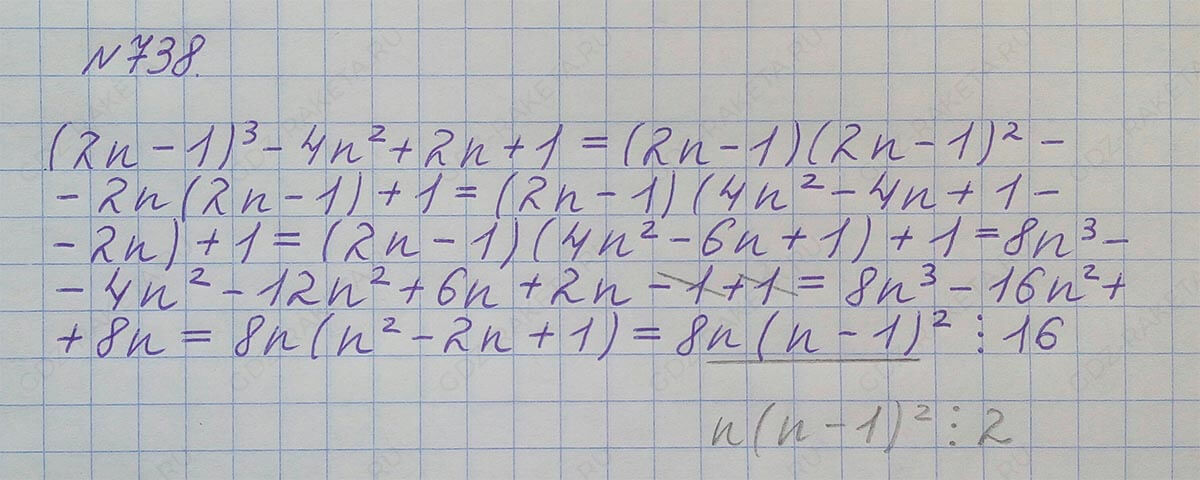 №738.
(2n-1)³-4n²+2n+1=(2n-1)(2n-1)²-
-2n(2n-1)+1=(2n-1)(4n²-4n+1-
-2n)+1=(2n-1)(4n²-6n+1)+1=8n³-
-4n²-12n²+6n+2n-1+1=8n³-16n²+
+8n=8n(n²-2n+1)=8n(n-1)²⋮16
n(n-1)²⋮2